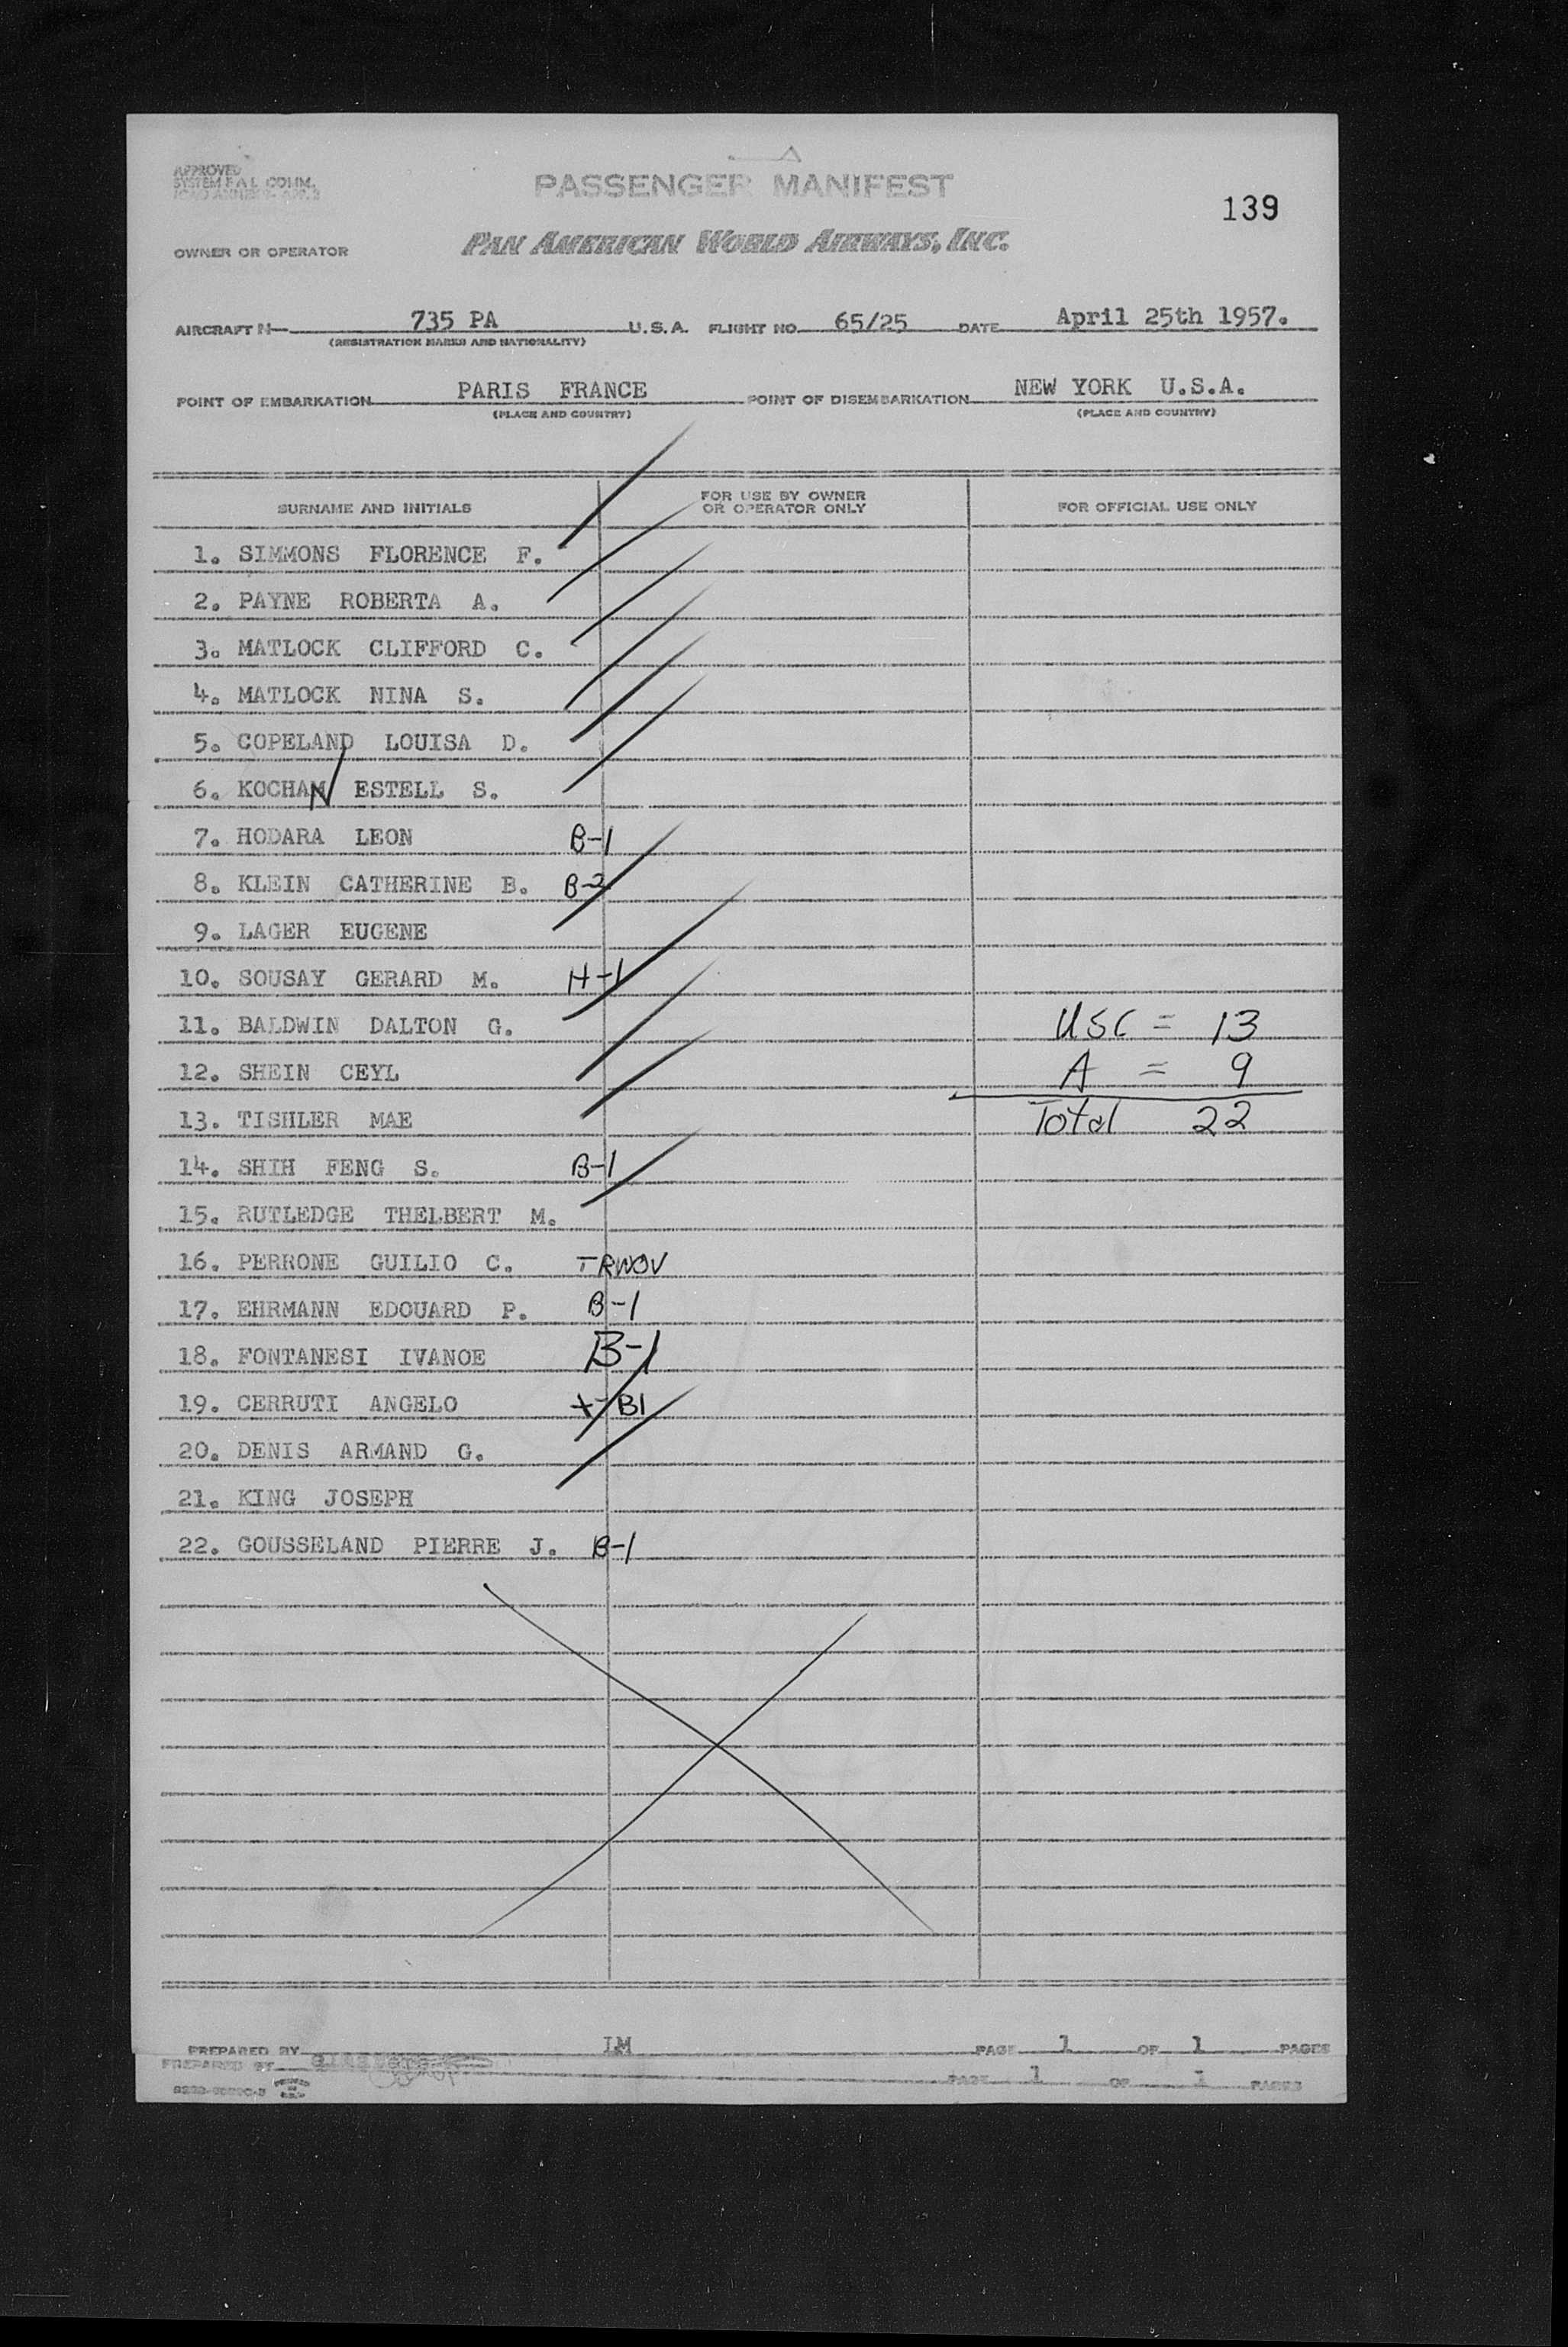 APPROVED
SYSTEM F A L COMM.
PASSENGER MANIFEST
139
OWNER OR OPERATOR PAN AMERICAN WORLD AIRWAYS, INC.
AIRCRAFT N— 735 PA U.S.A. FLIGHT NO. 65/25 DATE April 25th 1957.
(REGISTRATION MARKS AND NATIONALITY)
POINT OF EMBARKATION PARIS FRANCE POINT OF DISEMBARKATION NEW YORK U.S.A.
(PLACE AND COUNTRY) (PLACE AND COUNTRY)
SURNAME AND INITIALS FOR USE BY OWNER OR OPERATOR ONLY FOR OFFICIAL USE ONLY
1. SIMMONS FLORENCE F.
2. PAYNE ROBERTA A.
3. MATLOCK CLIFFORD C.
4. MATLOCK NINA S.
5. COPELAND LOUISA D.
6. KOCHAN ESTELL S.
7. HODARA LEON B-1
8. KLEIN CATHERINE B. B-2
9. LAGER EUGENE
10. SOUSAY GERARD M. H-1
11. BALDWIN DALTON G. USC = 13
12. SHEIN CEYL A = 9
13. TISHLER MAE Total 22
14. SHIH FENG S. B-1
15. RUTLEDGE THELBERT M.
16. PERRONE GUILIO C. TRWOV
17. EHRMANN EDOUARD P. B-1
18. FONTANESI IVANOE B-1
19. CERRUTI ANGELO B1
20. DENIS ARMAND G.
21. KING JOSEPH
22. GOUSSELAND PIERRE J. B-1
PREPARED BY LM PAGE 1 OF 1 PAGES
PREPARED BY PAGE 1 OF 1 PAGES